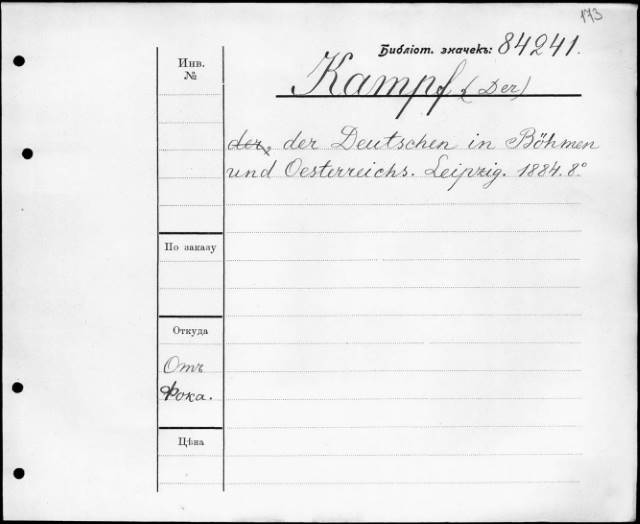 173
Библіот. значекъ: 84241.
Инв.
№
Kampf (Der)
der, der Deutschen in Böhmen
und Oesterreichs. Leipzig. 1884. 8°
По заказу
Откуда
Отъ
Фока.
Цѣна